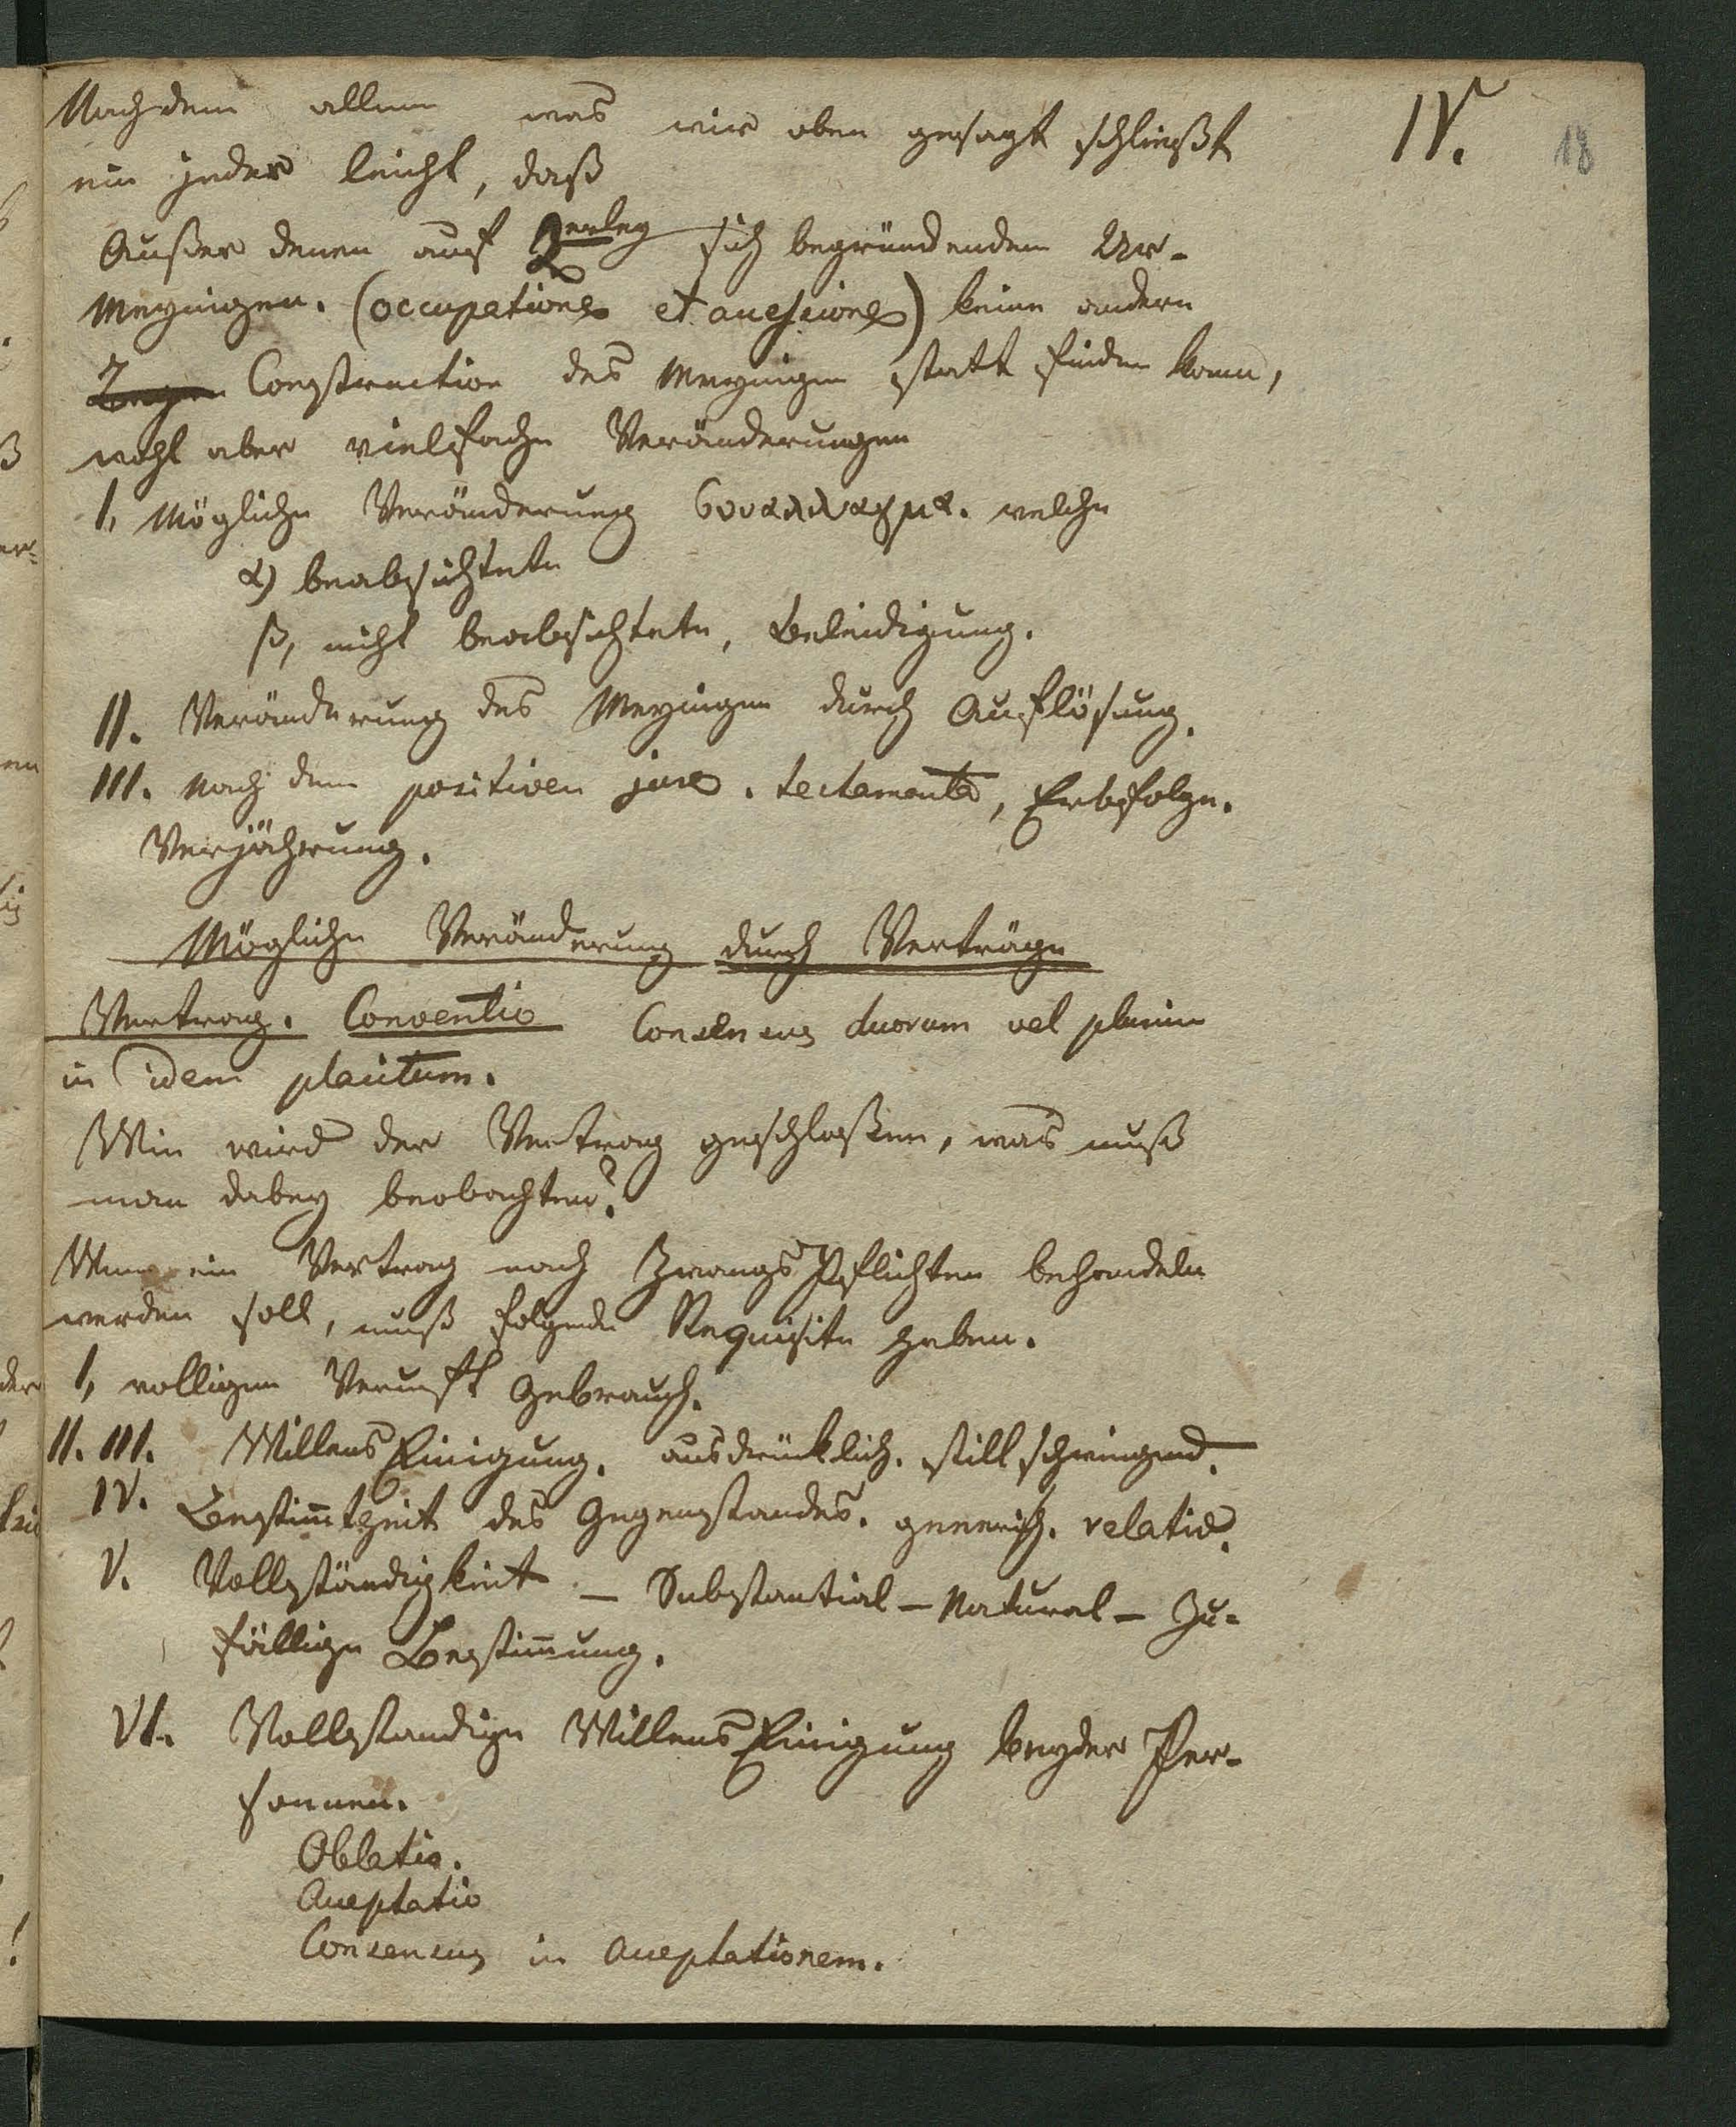 IV.
18
Nach dem allem was wir oben gesagt schließt
ein jeder leicht, daß
Außer denen auf 2erley sich begründendem Ur-
Meynigen. (occupatione et accessione) keine andern
Construction des Meynigen statt finden kann,
wohl aber vielfache Veränderungen
I, Mögliche Veränderung συναλλαγμα. welche
α) beabsichtete
β, nicht beabsichtete, Beleidigung.
II. Veränderung des Meynigen durch Auflösung.
III. Nach dem positiven jure. testamenta, Erbfolge.
Verjährung.
Mögliche Veränderung durch Verträge
Vertrag. Conventio Consensus duorum vel plurium
in idem placitum.
Wie wird der Vertrag geschloßen, was muß
man dabey beobachten?
Wenn ein Vertrag nach ZwangsPflichten behandeln
werden soll, muß folgende Requisite haben.
I, volligen Vernunft Gebrauch.
II. III. WillensEinigung. ausdrücklich. stillschweigend.
IV. Bestim̄theit des Gegenstandes. generisch. relativ.
V. Vollständigkeit – Substantial – Natural – Zu-
fällige Bestim̄ung.
VI. Vollstandige WillensEinigung beyder Per-
sonnen.
Oblatio.
Acceptatio
Consensus in acceptationem.